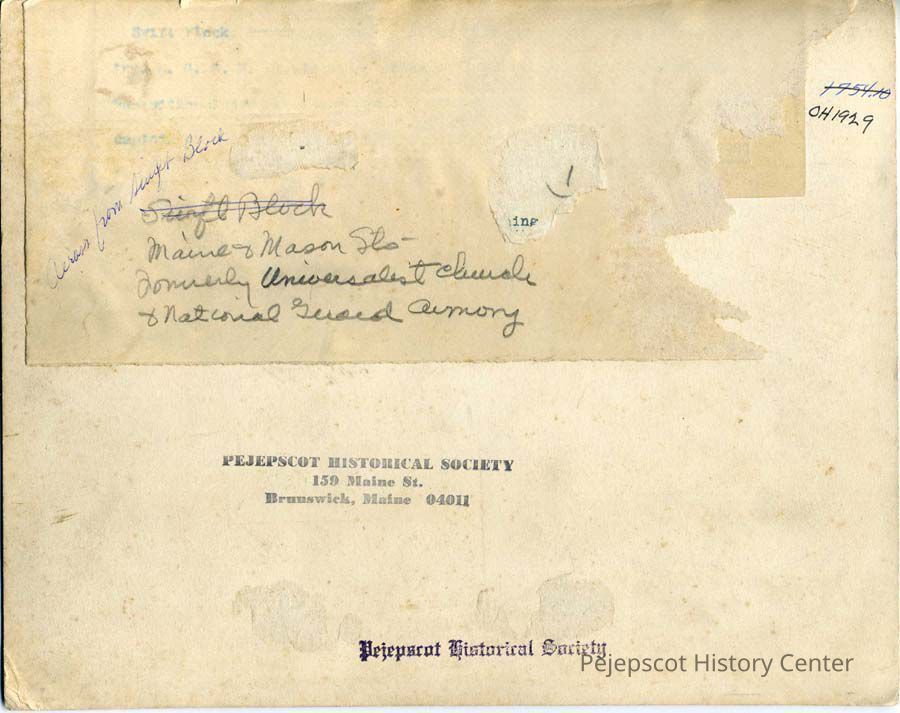 Swift Block
1954.10
OH1929
Across from Swift Block
ing
Swift Block
Maine & Mason Sts-
Formerly Universalist Church
& National Guard Armory
PEJEPSCOT HISTORICAL SOCIETY
159 Maine St.
Brunswick, Maine 04011
Pejepscot Historical Society
Pejepscot History Center